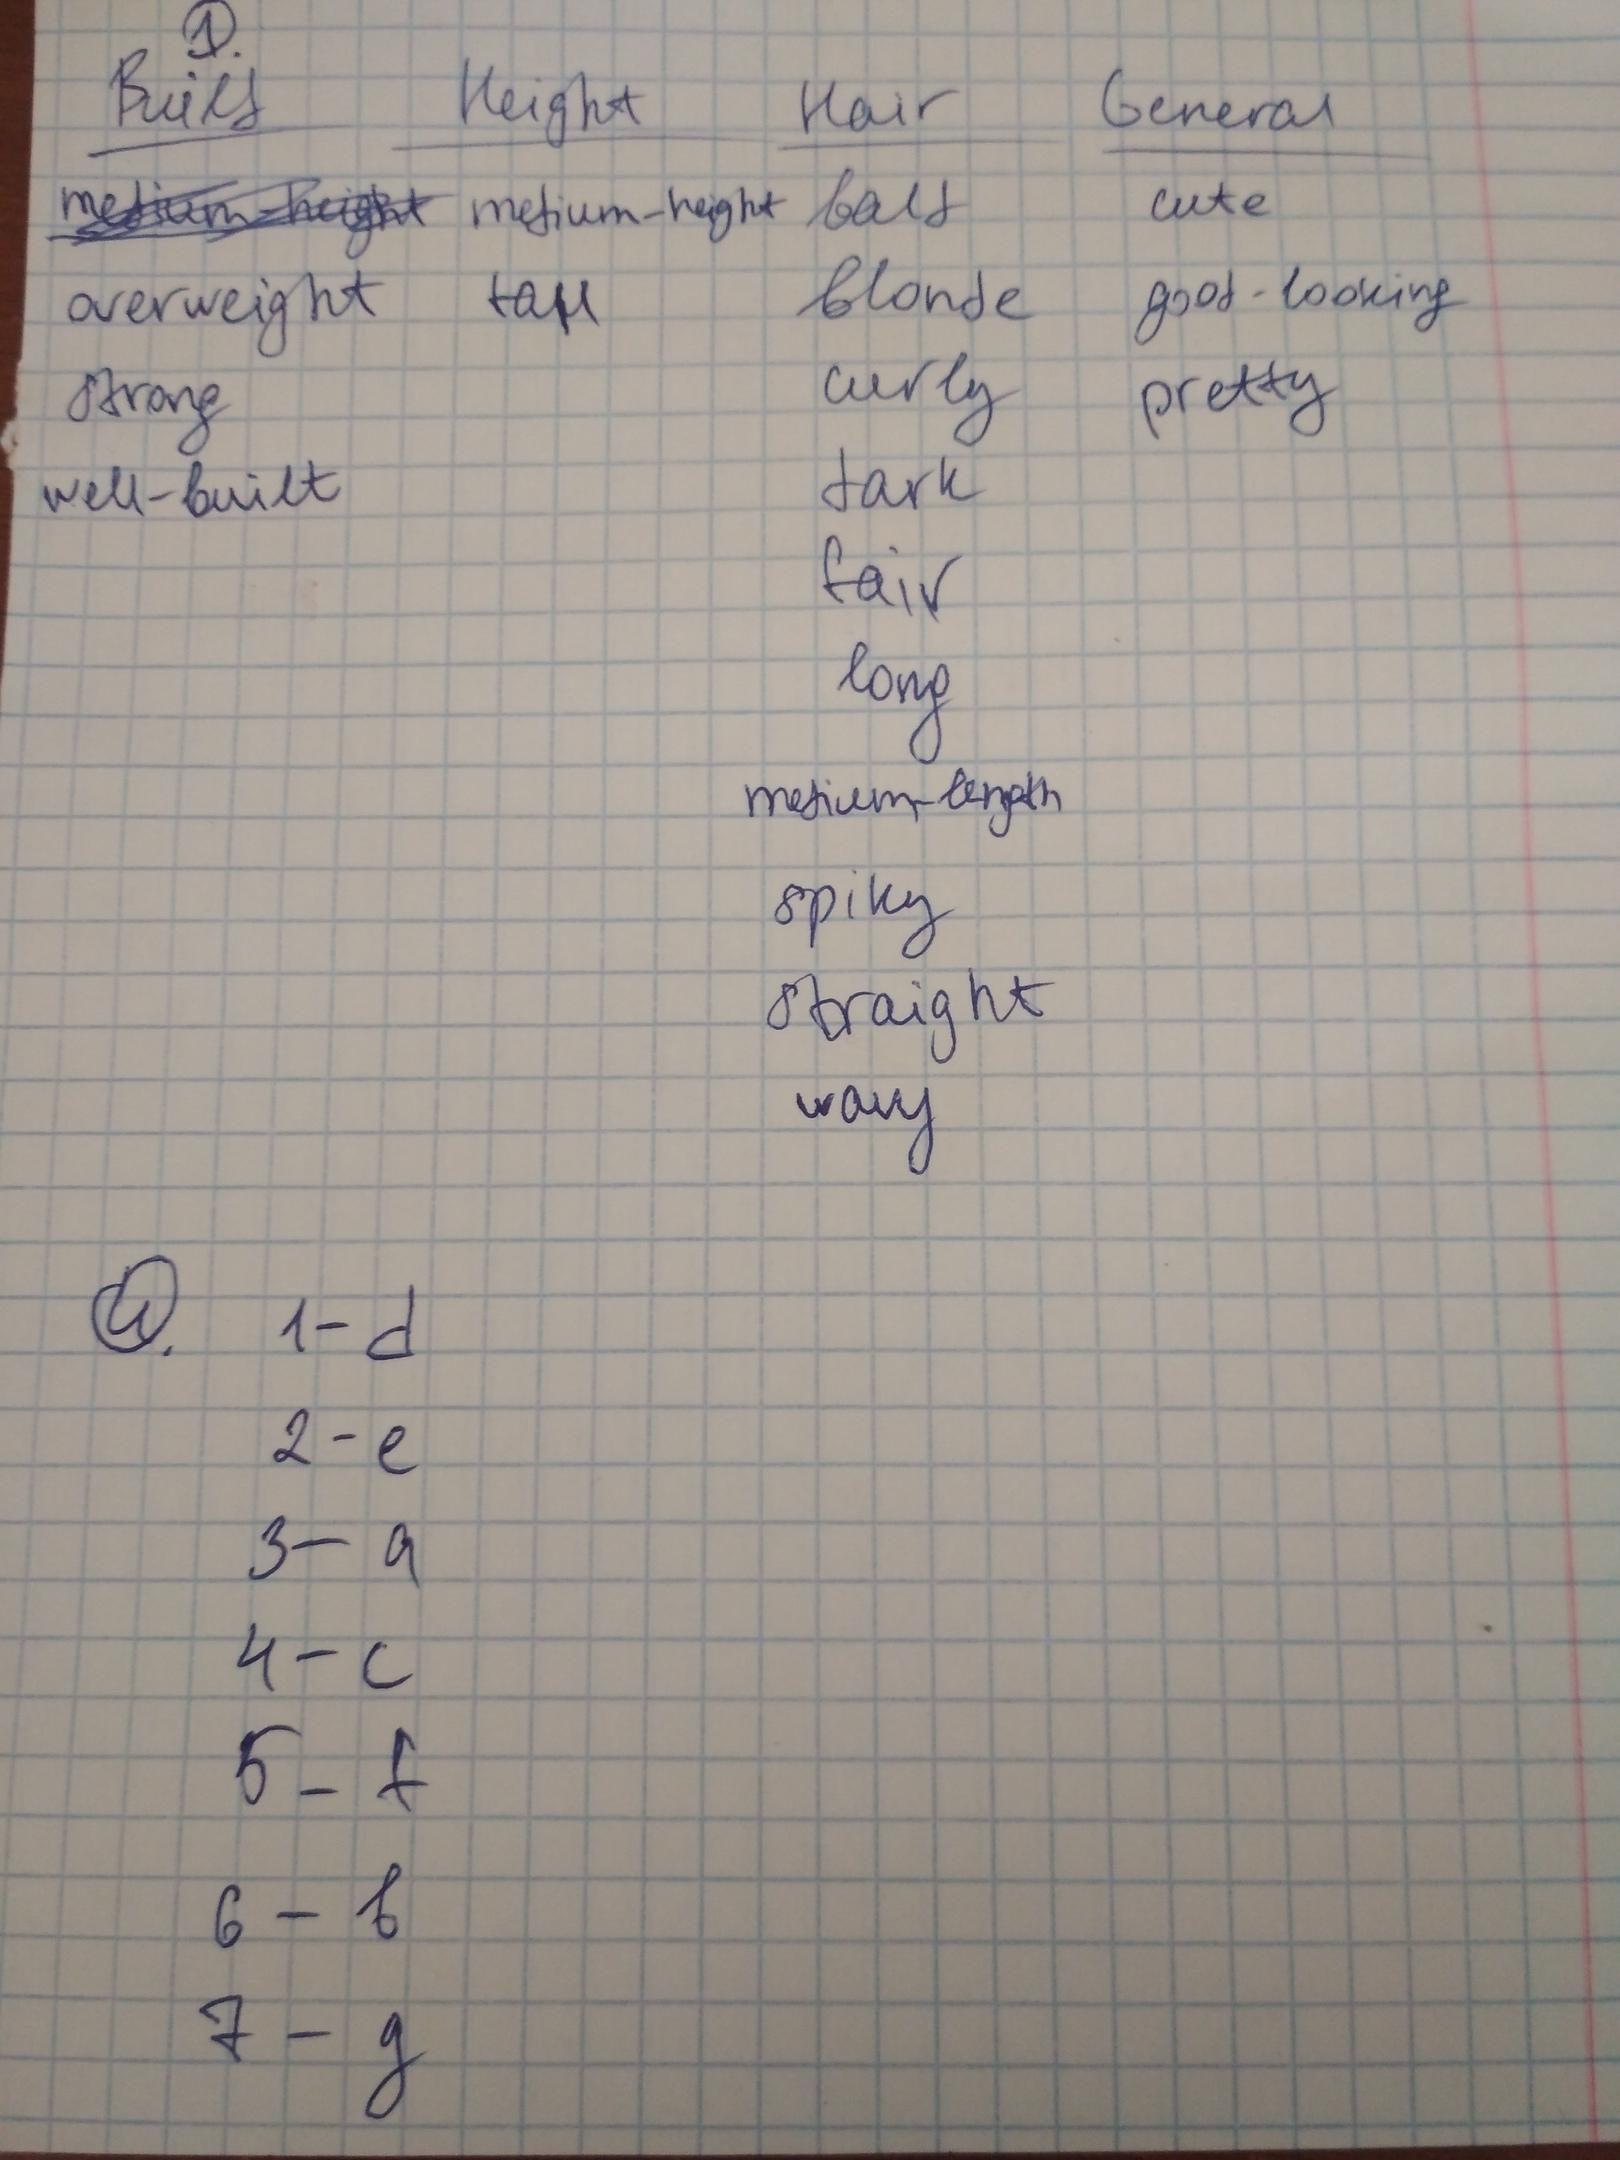 1.
Build Height Hair General
medium-height medium-height bald cute
overweight tall blonde good-looking
strong curly pretty
well-built dark
fair
long
medium-length
spiky
straight
wavy
4. 1-d
2-e
3-a
4-c
5-f
6-b
7-g